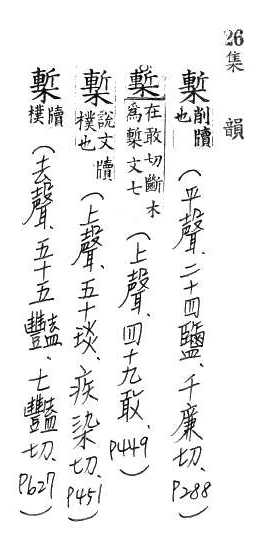 26集韻
槧削牘也(平聲、二十四鹽、千廉切、P288)
槧在敢切斷木為槧文七(上聲、四十九敢、P449)
槧說文牘樸也(上聲、五十琰、疾染切、P451)
槧牘樸(去聲、五十五豔、七豔切、P627)